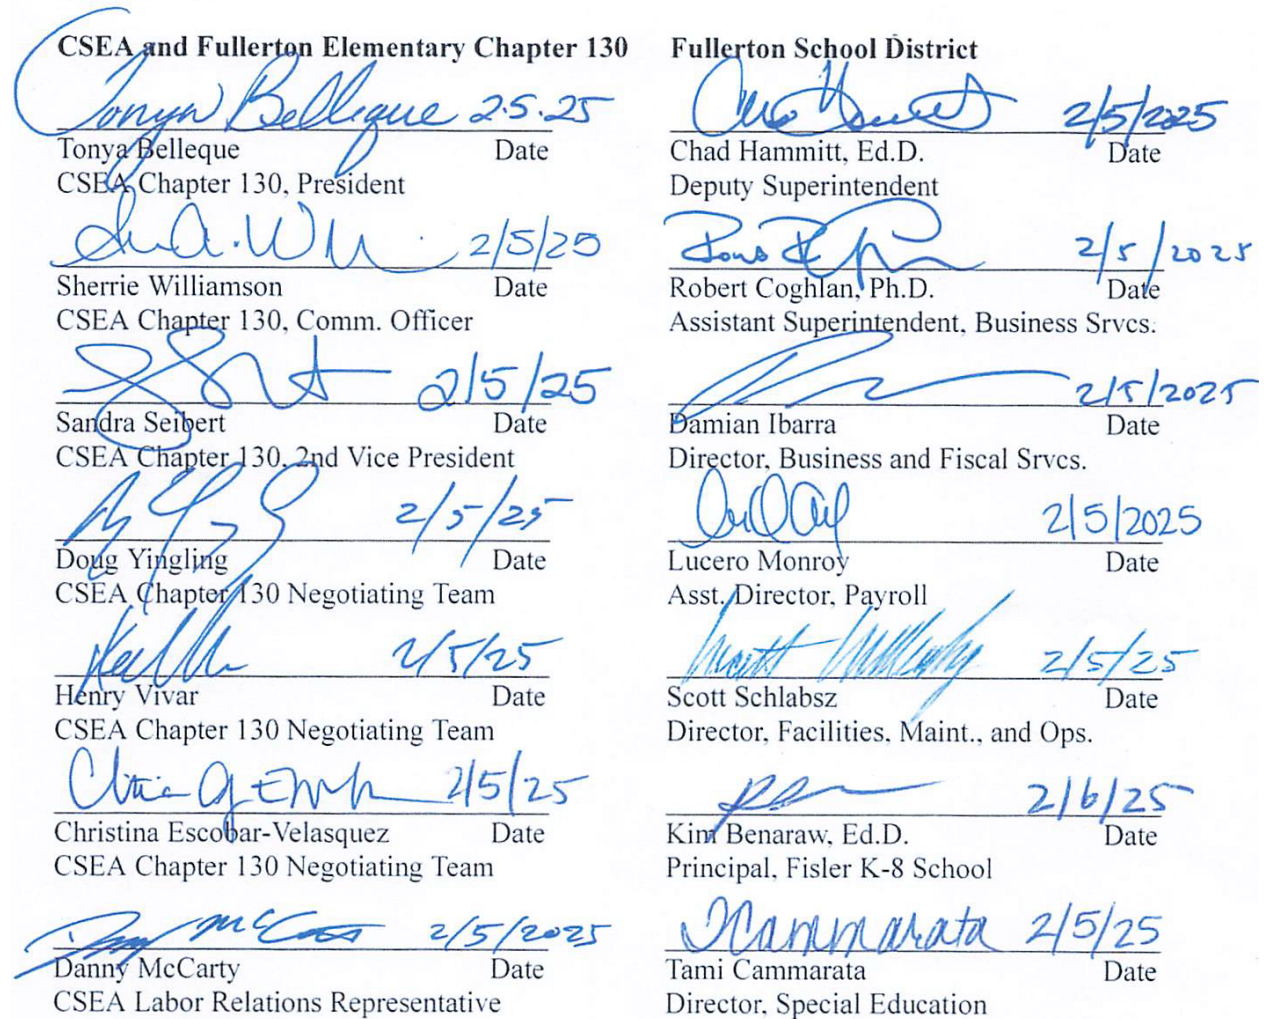 CSEA and Fullerton Elementary Chapter 130
Tonya Belleque 2.5.25
Tonya Belleque Date
CSEA Chapter 130, President
2/5/25
Sherrie Williamson Date
CSEA Chapter 130, Comm. Officer
2/5/25
Sandra Seibert Date
CSEA Chapter 130, 2nd Vice President
2/5/25
Doug Yingling Date
CSEA Chapter 130 Negotiating Team
2/5/25
Henry Vivar Date
CSEA Chapter 130 Negotiating Team
2/5/25
Christina Escobar-Velasquez Date
CSEA Chapter 130 Negotiating Team
2/5/2025
Danny McCarty Date
CSEA Labor Relations Representative
Fullerton School District
2/5/2025
Chad Hammitt, Ed.D. Date
Deputy Superintendent
2/5/2025
Robert Coghlan, Ph.D. Date
Assistant Superintendent, Business Srvcs.
2/5/2025
Damian Ibarra Date
Director, Business and Fiscal Srvcs.
2/5/2025
Lucero Monroy Date
Asst. Director, Payroll
2/5/25
Scott Schlabsz Date
Director, Facilities, Maint., and Ops.
2/6/25
Kim Benaraw, Ed.D. Date
Principal, Fisler K-8 School
TCammarata 2/5/25
Tami Cammarata Date
Director, Special Education